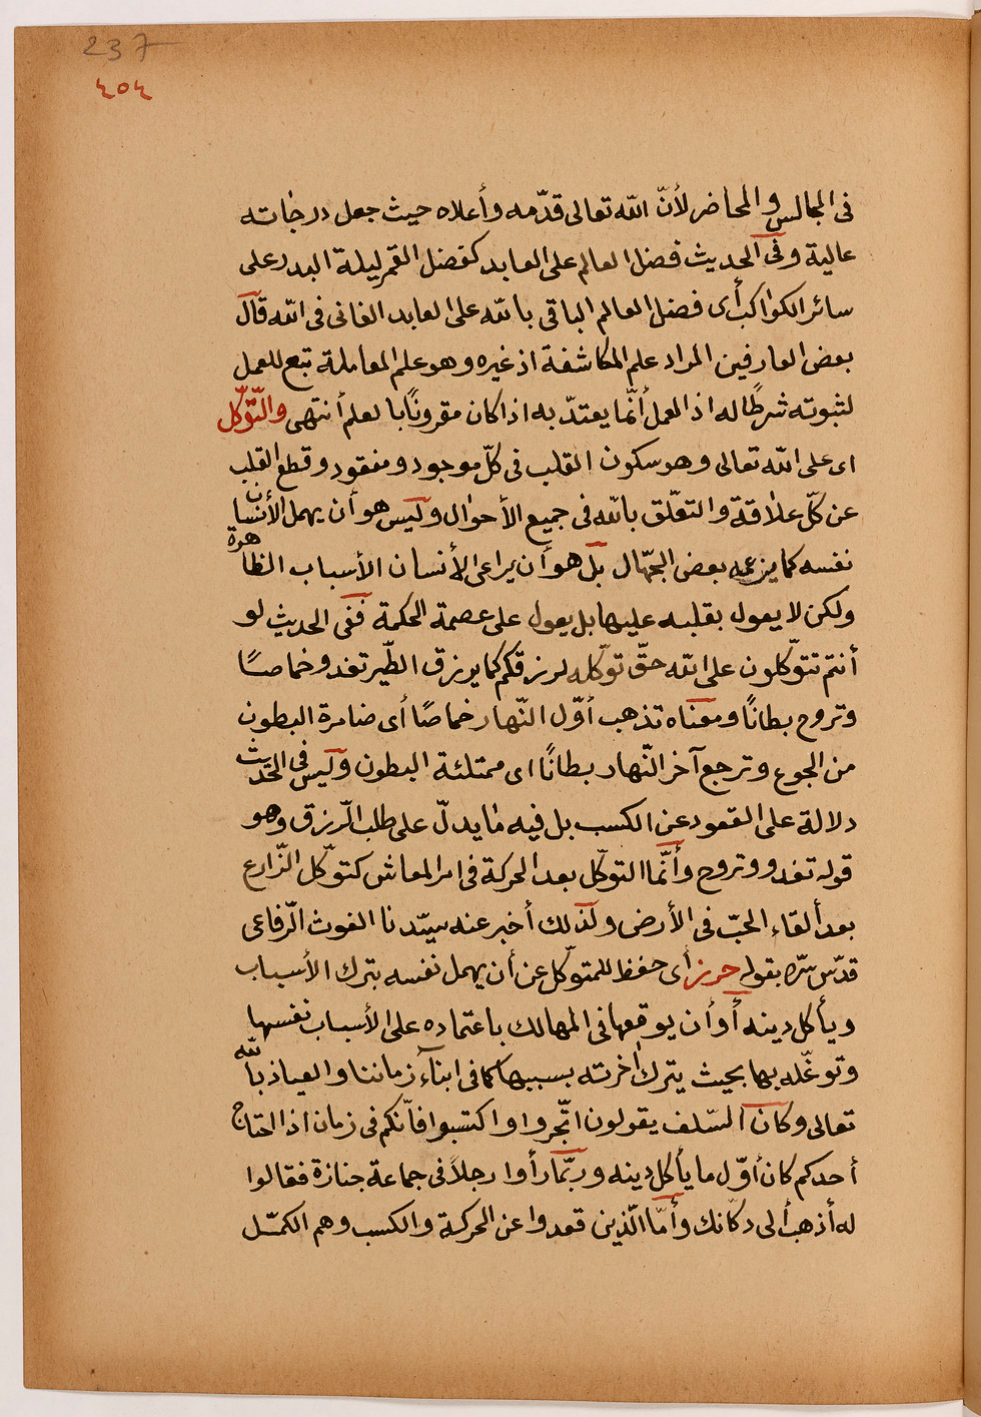 237
٤٥٤
فى المجالس والمحاضر لأنّ الله تعالى قدّمه وأعلاه حيث جعل درجاته
عالية وفى الحديث فضل العالم على العابد كفضل القمر ليلة البدر على
سائر الكواكب أى فضل العالم الباقى بالله على العابد الفانى فى الله قال
بعض العارفين المراد علم المكاشفة اذ غيره وهو علم المعاملة تبع للعمل
لثبوته شرطًا له اذ العمل أنّما يعتدّ به اذا كان مقرونًا با لعلم أنتهى والتّوكّل
اى على الله تعالى وهو سكون القلب فى كلّ موجود ومفقود وقطع القلب
عن كلّ علاقة والتعلّق بالله فى جميع الأحوال وليس هو أن يهمل الأنسان
نفسه كما يزعمه بعض الجهّال بل هو أن يراعى الأنسان الأسباب الظاهرة
ولكن لا يعول بقلبه عليها بل يعول على عصمة الحكمة ففى الحديث لو
أنتم تتوّكلون على الله حقّ توكّله لرزقكم كما يرزق الطّير تغدو خماصًا
وتروح بطانًا ومعناه تذهب أوّل النّهار خماصًا أى ضامرة البطون
من الجوع وترجع آخر النّهار بطانًا اى ممتلئة البطون وليس فى الحديث
دلالة على القعود عن الكسب بل فيه ما يدلّ على طلب الّرزق وهو
قوله تغدو وتروح وأنّما التوكّل بعد الحركة فى امر المعاش كتوكّل الزّارع
بعد ألقاء الحبّ فى الأرض ولذلك أخبر عنه سيّدنا الغوث الّرفاعى
قدّس سّره بقوله حرز أى حفظ للمتوكّل عن أن يهمل نفسه بترك الأسباب
ويأكل دينه أو أن يوقعها فى المهالك باعتماده على الأسباب نفسها
وتوغّله بها بحيث يترك أخرته بسببها كما فى ابناء زماننا والعياذ بالله
تعالى وكان السّلف يقولون اتّجروا واكتسبوا فأنّكم فى زمان اذا احتاج
أحدكم كان أوّل ما يأكل دينه وربّما رأوا رجلاً فى جماعة جنازة فقالوا
له أذهب ألى دكّانك وأمّا الّذين قعدوا عن الحركة والكسب وهم الكمّل